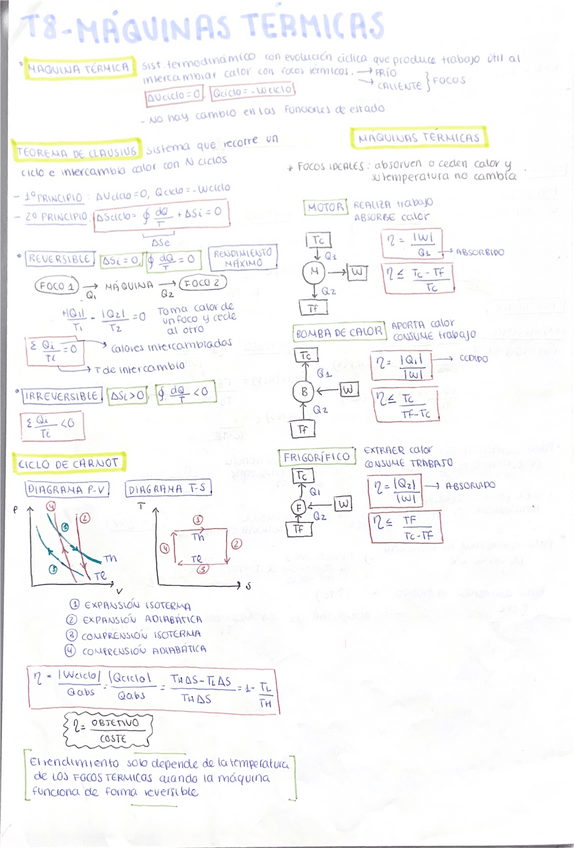 T8-MÁQUINAS TÉRMICAS
* MÁQUINA TÉRMICA sist. termodinámico con evolución cíclica que produce trabajo útil al
intercambiar calor con focos térmicos. → FRÍO
→ CALIENTE } FOCOS
ΔUciclo=0, Qciclo=-Wciclo
- No hay cambio en las funciones de estado
TEOREMA DE CLAUSIUS sistema que recorre un
ciclo e intercambia calor con N ciclos
- 1º PRINCIPIO: ΔUciclo=0, Qciclo=-Wciclo
- 2º PRINCIPIO ΔSciclo= ∮ dQ/T + ΔSi = 0
ΔSe
* REVERSIBLE ΔSi=0, ∮ dQ/T = 0 RENDIMIENTO MÁXIMO
FOCO 1 → MÁQUINA → FOCO 2
Q1 Q2
+|Q1|/T1 - |Q2|/T2 = 0 Toma calor de
un foco y cede
al otro
Σ Qi/Ti = 0 → Calores intercambiados
→ T de intercambio
* IRREVERSIBLE ΔSi>0, ∮ dQ/T < 0
Σ Qi/Ti < 0
CICLO DE CARNOT
DIAGRAMA P-V DIAGRAMA T-S
P 4 1 2 3 Th Tl V
T 1 Th 4 2 Tl 3 S
① EXPANSIÓN ISOTERMA
② EXPANSIÓN ADIABÁTICA
③ COMPRENSIÓN ISOTERMA
④ COMPRENSIÓN ADIABÁTICA
η = |Wciclo|/Qabs = |Qciclo|/Qabs = THΔS-TLΔS/THΔS = 1- TL/TH
η = OBJETIVO/COSTE
El rendimiento solo depende de la temperatura
de LOS FOCOS TÉRMICOS cuando la máquina
funciona de forma reversible
MÁQUINAS TÉRMICAS
* FOCOS IDEALES: absorven o ceden calor y
su temperatura no cambia
MOTOR REALIZA trabajo
ABSORBE calor
Tc
Q1
M → W
TF
η = |W|/Q1 → ABSORBIDO
η ≤ Tc-TF/Tc
BOMBA DE CALOR APORTA calor
CONSUME trabajo
Tc
Q1
B ← W
Q2
TF
η = |Q1|/|W| → CEDIDO
η ≤ Tc/TF-Tc
FRIGORÍFICO EXTRAER calor
CONSUME TRABAJO
Tc
Q1
F ← W
Q2
TF
η = |Q2|/|W| → ABSORVIDO
η ≤ TF/Tc-TF